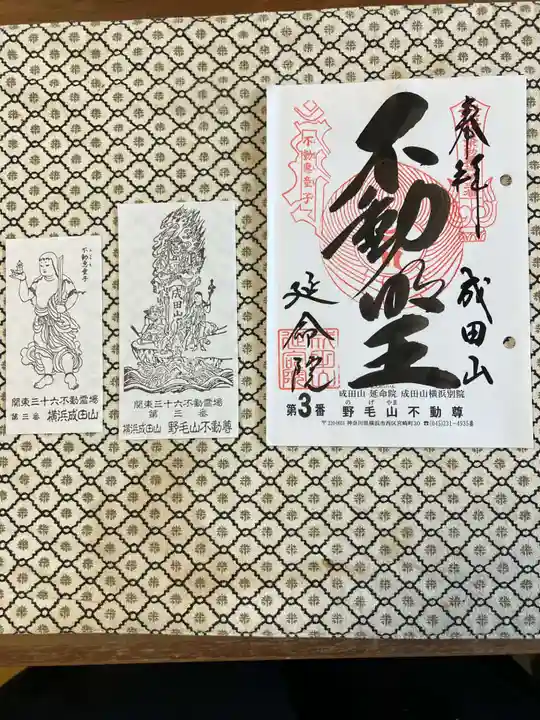 不動恵童子
関東三十六不動霊場
第三番 横浜成田山
成田山
関東三十六不動霊場
第三番
横浜成田山 野毛山不動尊
奉拝
成田山
不動堂
延命院
不動恵童子
成田山 延命院 成田山横浜別院
のげやま
第3番 野毛山不動尊
神奈川県横浜市西区宮崎町30 ☎(045)231-4935